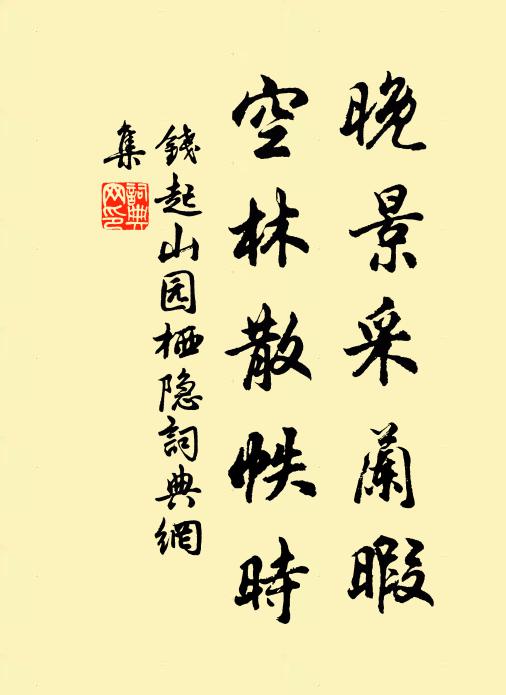 晚景采蘭暇
空林散帙時
錢起山园栖隐詞典網
集
詞典网印